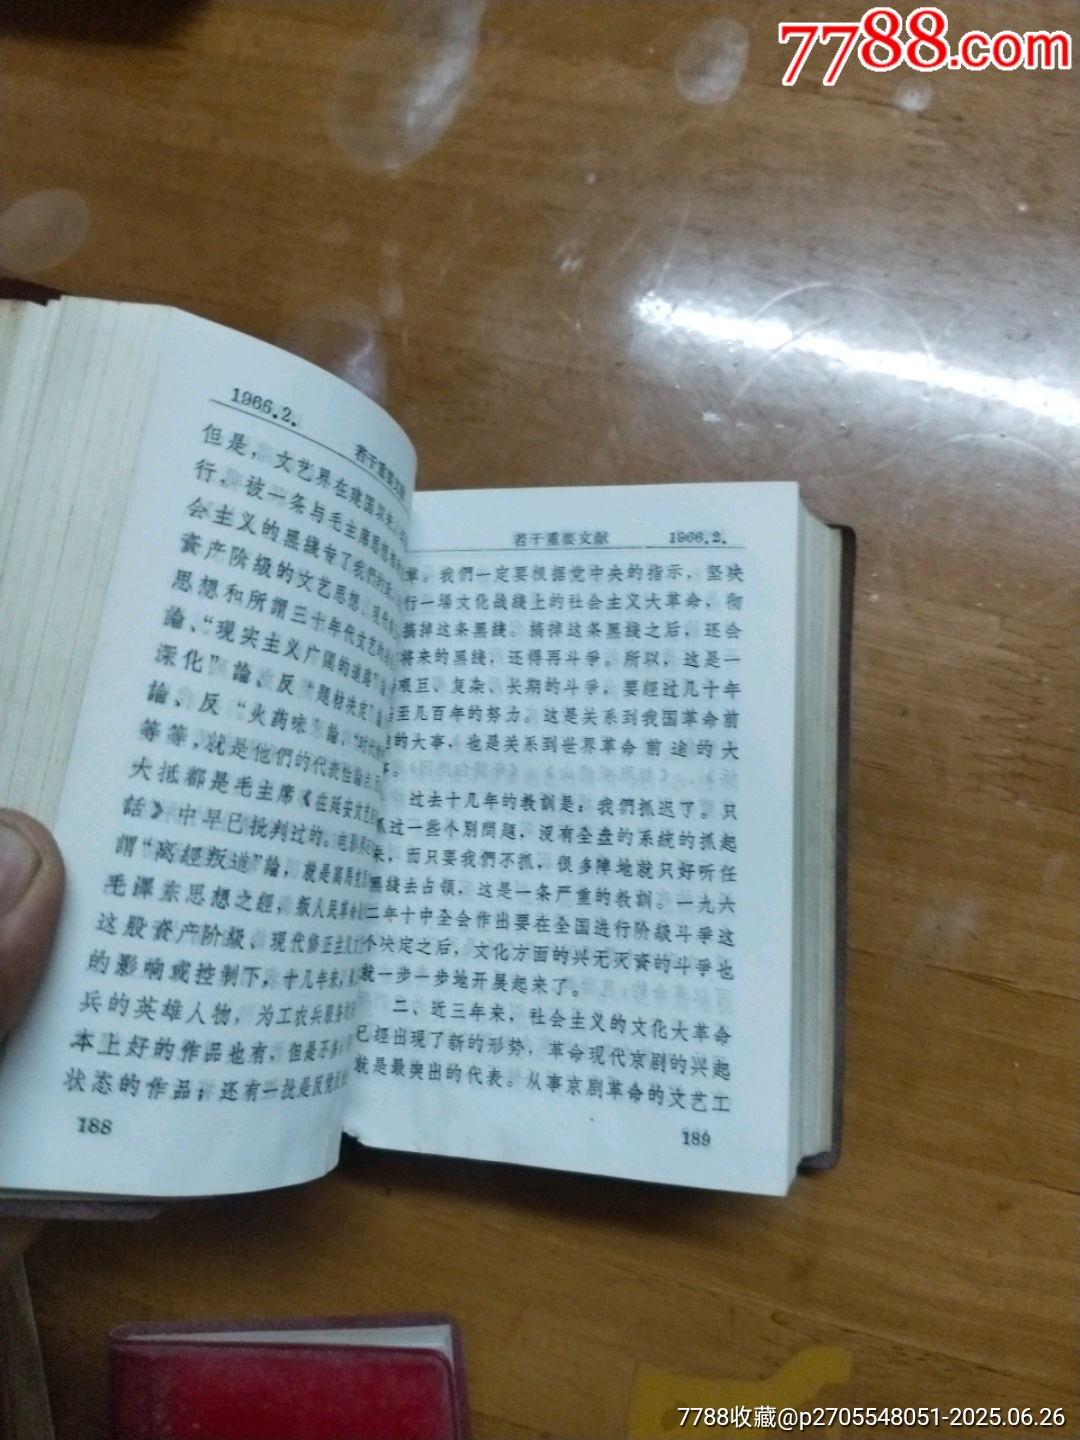 7788.com
1966.2.
若干重要文献
但是，文艺界在建国以来
行，被一条与毛主席思想
会主义的黑线专了我們的
資产阶级的文艺思想、现代修
思想和所謂三十年代文艺的
論、“现实主义广闊的道路”論
深化”論、反“題材决定”論
論、反“火药味”論、“时代
等等，就是他們的代表性論点
大抵都是毛主席《在延安文艺
話》中早已批判过的。电影界
謂“离經叛道”論，就是离馬克
毛澤东思想之經，叛人民革命
这股資产阶级、现代修正主义文
的影响或控制下，十几年来，
兵的英雄人物，为工农兵服务
本上好的作品也有，但是不多
状态的作品；还有一批是反党
188
若干重要文献 1966.2.
革。我們一定要根据党中央的指示，坚决
行一場文化战綫上的社会主义大革命，彻
搞掉这条黑綫。搞掉这条黑綫之后，还会
将来的黑綫，还得再斗爭。所以，这是一
艰巨、复杂、长期的斗爭，要經过几十年
至几百年的努力。这是关系到我国革命前
的大事，也是关系到世界革命前途的大
过去十几年的教訓是：我們抓迟了。只
抓过一些个別問題，沒有全盘的系統的抓起
来，而只要我們不抓，很多陣地就只好听任
黑綫去占領，这是一条严重的教訓。一九六
二年十中全会作出要在全国进行阶級斗爭这
个决定之后，文化方面的兴无灭資的斗爭也
就一步一步地开展起来了。
二、近三年来，社会主义的文化大革命
已經出现了新的形势，革命现代京剧的兴起
就是最突出的代表。从事京剧革命的文艺工
189
7788收藏@p2705548051-2025.06.26